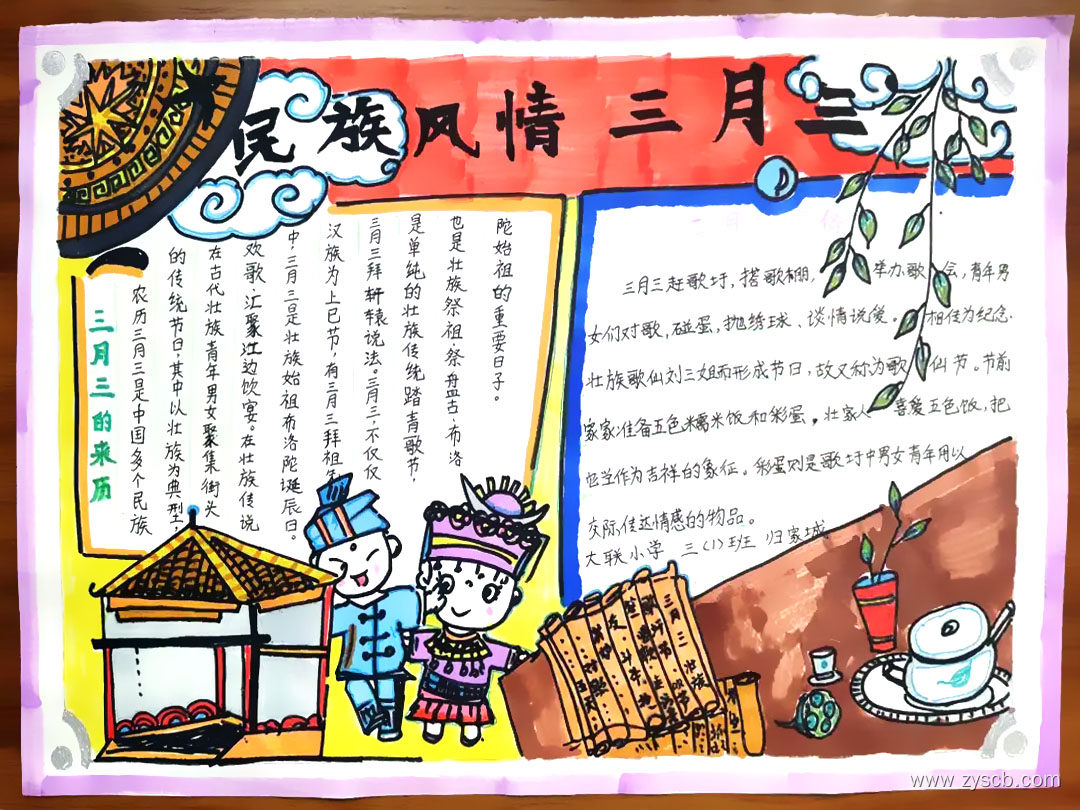 民族风情 三月三
三月三的来历
农历三月三是中国多个民族
的传统节日,其中以壮族为典型,
在古代壮族青年男女聚集街头
欢歌、汇聚江边饮宴。在壮族传说
中,三月三是壮族始祖布洛陀诞辰日。
汉族为上巳节,有三月三拜祖
三月三拜轩辕说法。三月三,不仅仅
是单纯的壮族传统踏青歌节,
也是壮族祭祖、祭盘古、布洛
陀始祖的重要日子。
三月三赶歌圩,搭歌棚,举办歌会,青年男
女们对歌,碰蛋,抛绣球、谈情说爱。相传为纪念
壮族歌仙刘三姐而形成节日,故又称为歌仙节。节前
家家准备五色糯米饭和彩蛋。壮家人喜爱五色饭,把
它当作为吉祥的象征。彩蛋则是歌圩中男女青年用以
交际传达情感的物品。
大联小学 三(1)班 归家城
三月三 壮族
www.zyscb.com